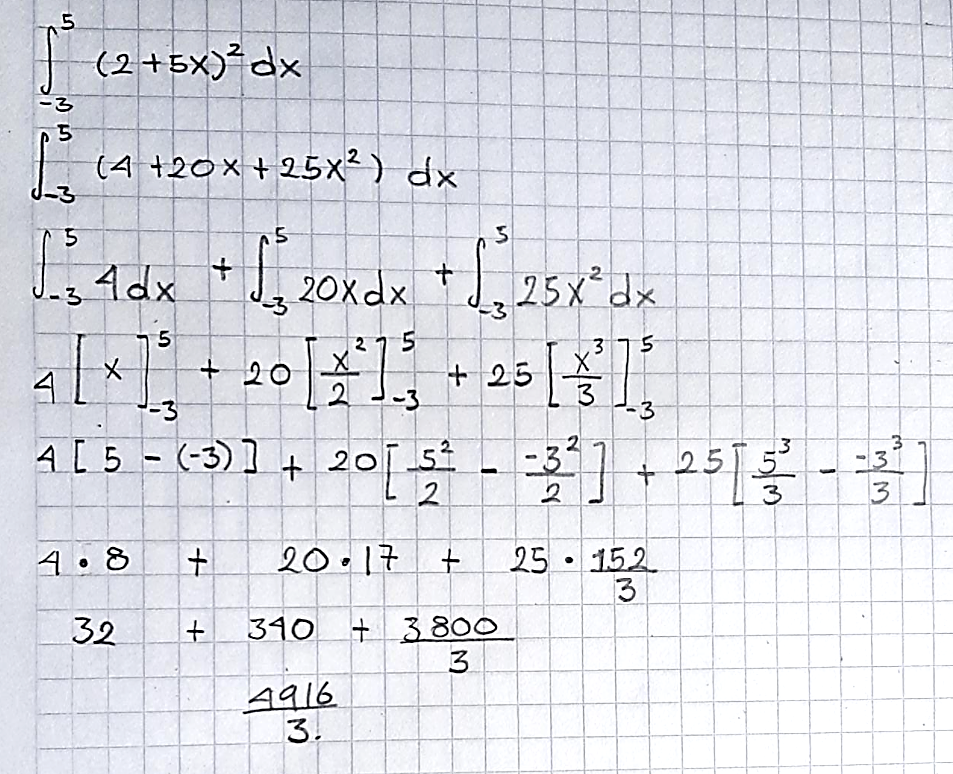 ∫₋₃⁵ (2+5x)² dx
∫₋₃⁵ (4+20x+25x²) dx
∫₋₃⁵ 4dx + ∫₋₃⁵ 20xdx + ∫₋₃⁵ 25x²dx
4[x]₋₃⁵ + 20[x²/2]₋₃⁵ + 25[x³/3]₋₃⁵
4[5-(-3)] + 20[5²/2 - -3²/2] + 25[5³/3 - -3³/3]
4·8 + 20·17 + 25·152/3
32 + 340 + 3800/3
4916/3.